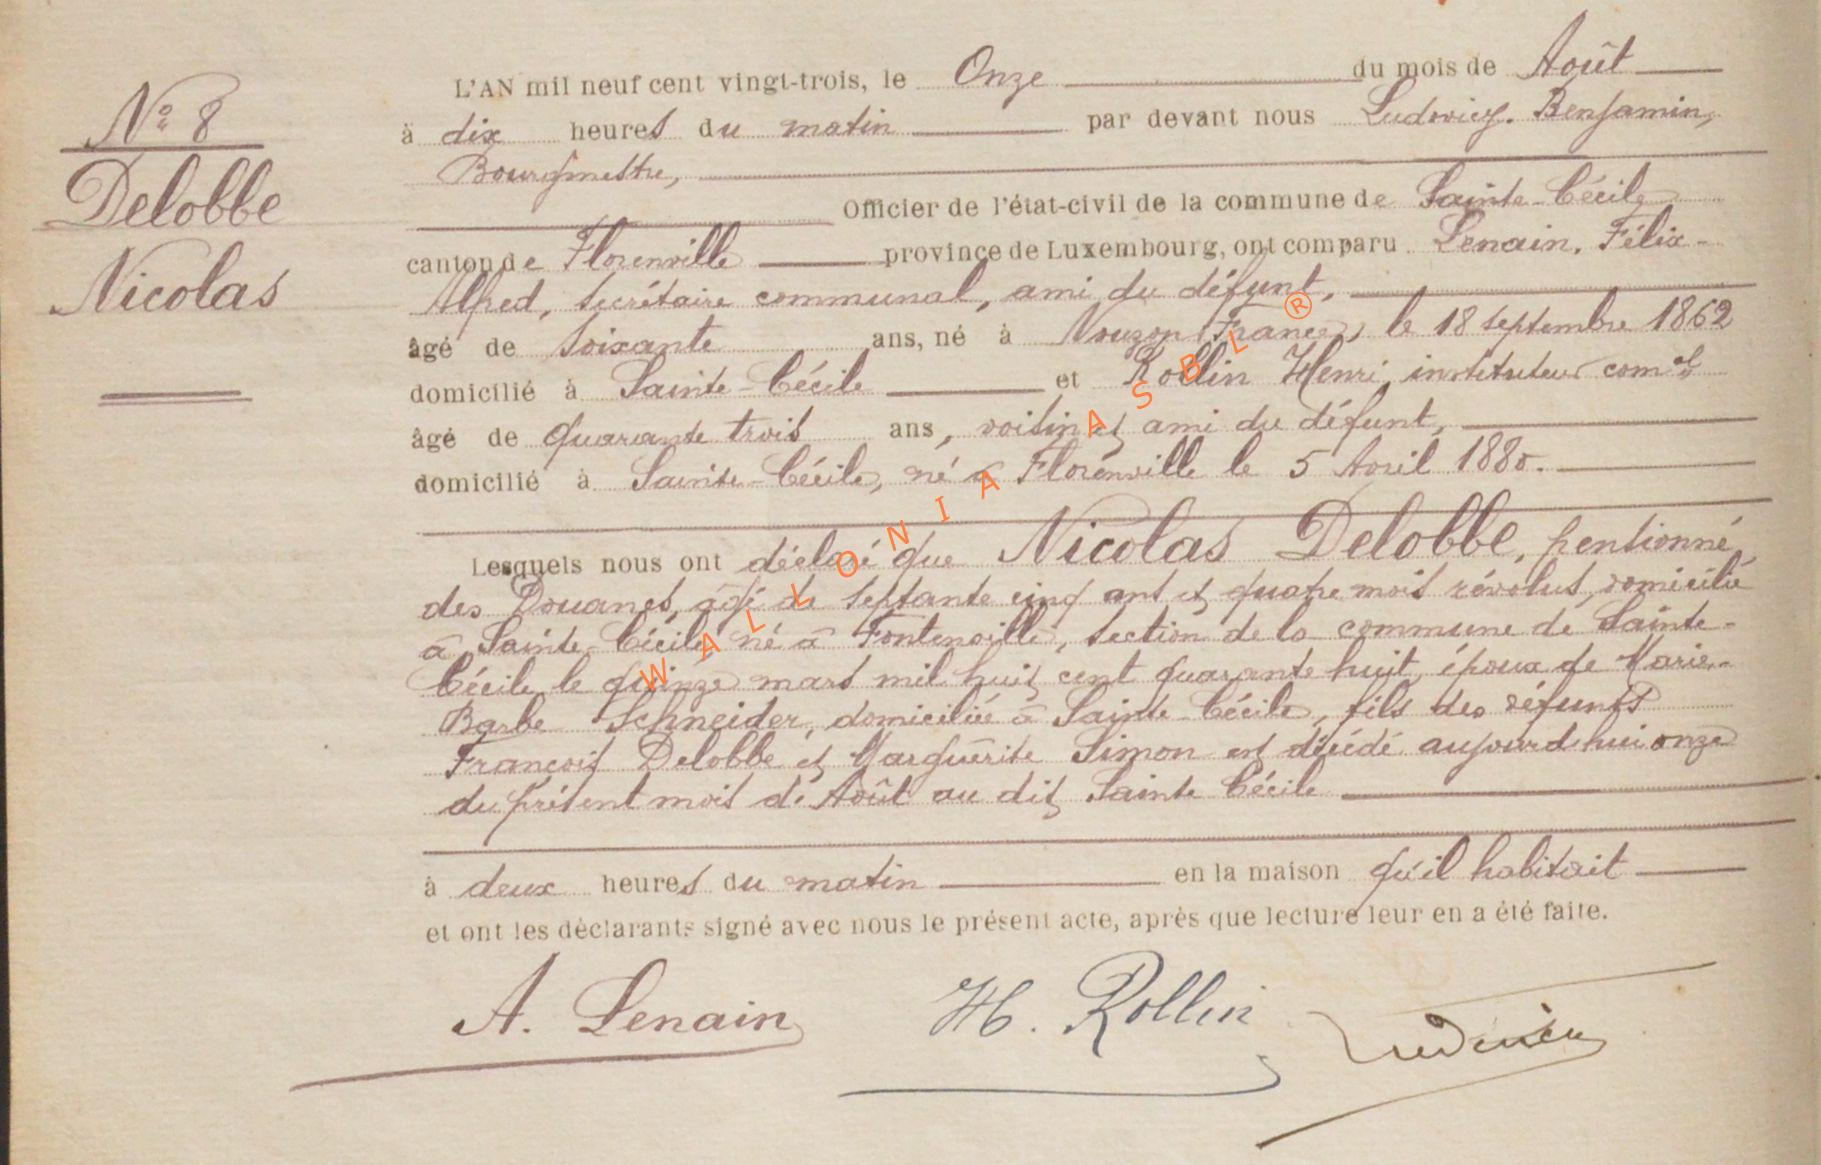 N° 8
Delobbe
Nicolas
L'AN mil neuf cent vingt-trois, le Onze du mois de Août
à dix heures du matin par devant nous Ludovicy. Benjamin,
Bourgmestre,
Officier de l'état-civil de la commune de Sainte-Cécile
canton de Florenville province de Luxembourg, ont comparu Lenain, Félix-
Alfred, secrétaire communal, ami du défunt,
âgé de soixante ans, né à Nouzon (France), le 18 septembre 1862
domicilié à Sainte-Cécile et Rollin Henri instituteur comal
âgé de quarante trois ans, voisin et ami du défunt,
domicilié à Sainte-Cécile, né à Florenville le 5 Avril 1880.
Lesquels nous ont déclaré que Nicolas Delobbe, pensionné
des Douanes, âgé de septante cinq ans et quatre mois révolus, domicilié
à Sainte-Cécile, né à Fontenoille, section de la commune de Sainte-
Cécile, le quinze mars mil huit cent quarante huit, époux de Marie-
Barbe Schneider, domiciliée à Sainte-Cécile, fils des défunts
François Delobbe et Marguerite Simon est décédé aujourd'hui onze
du présent mois de Août au dit Sainte Cécile
à deux heures du matin en la maison qu'il habitait
et ont les déclarants signé avec nous le présent acte, après que lecture leur en a été faite.
A. Lenain H. Rollin
WALLONIA ASBL ®